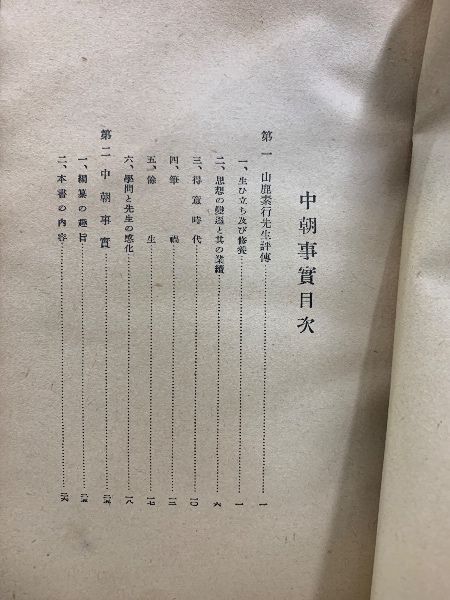 中朝事實目次
第一 山鹿素行先生評傳……一
一、生ひ立ち及び修養……一
二、思想の變遷と其の業績……六
三、得意時代……一〇
四、筆禍……一三
五、餘生……一七
六、學問と先生の感化……一八
第二 中朝事實……二五
一、編纂の趣旨……二五
二、本書の內容……二六